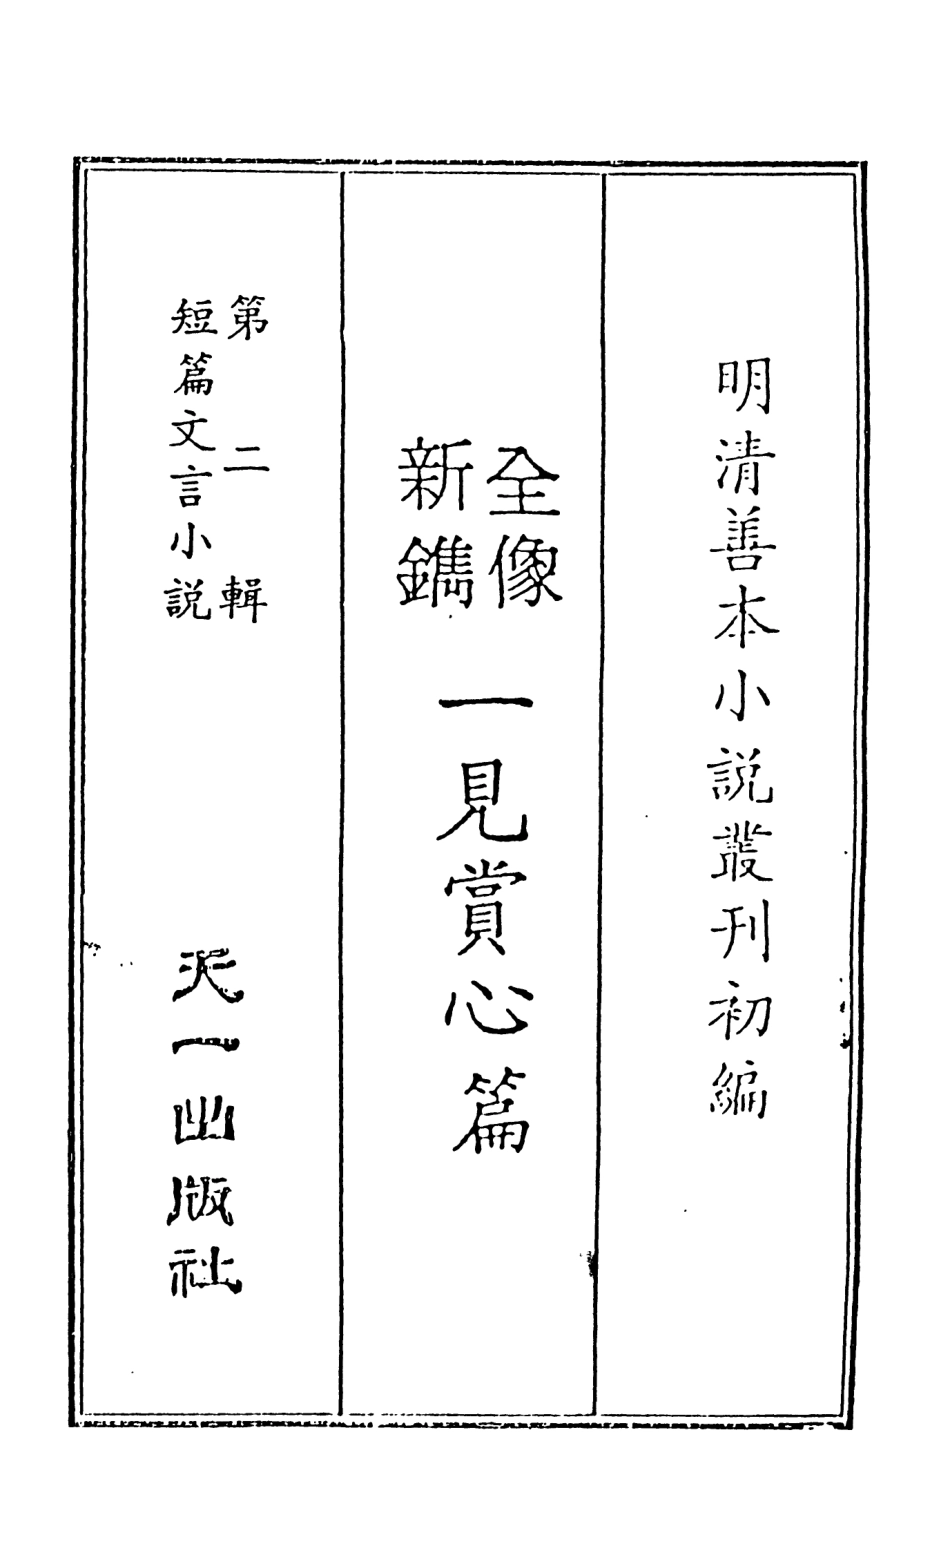 明清善本小說叢刊初編
全像
新鐫
一見賞心篇
第二輯
短篇文言小說
天一出版社